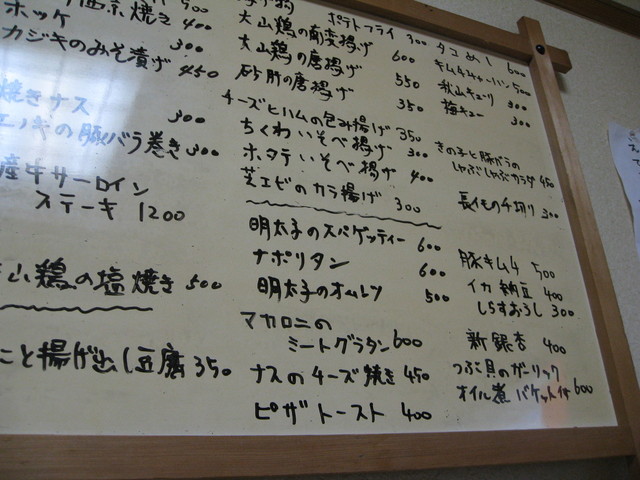 西京焼き 400
ホッケ 300
カジキのみそ漬け 450
焼きナス 300
エノキの豚バラ巻き 300
産牛サーロイン
ステーキ 1200
山鶏の塩焼き 500
こと揚げ出し豆腐 350
ポテトフライ 300
大山鶏の南蛮揚げ 600
大山鶏の唐揚げ 550
砂肝の唐揚げ 350
チーズとハムの包み揚げ 350
ちくわいそべ揚げ 300
ホタテいそべ揚げ 400
芝エビのカラ揚げ 300
明太子のスパゲッティー 600
ナポリタン 600
明太子のオムレツ 500
マカロニの
ミートグラタン 600
ナスのチーズ焼き 450
ピザトースト 400
タコめし 600
キムチチャーハン 500
秋山キューリ 300
梅キュー 300
きの子と豚バラの
しゃぶしゃぶサラダ 450
長イモの千切り 300
豚キムチ 500
イカ納豆 400
しらすおろし 300
新銀杏 400
つぶ貝のガーリック
オイル煮 バケット付 600